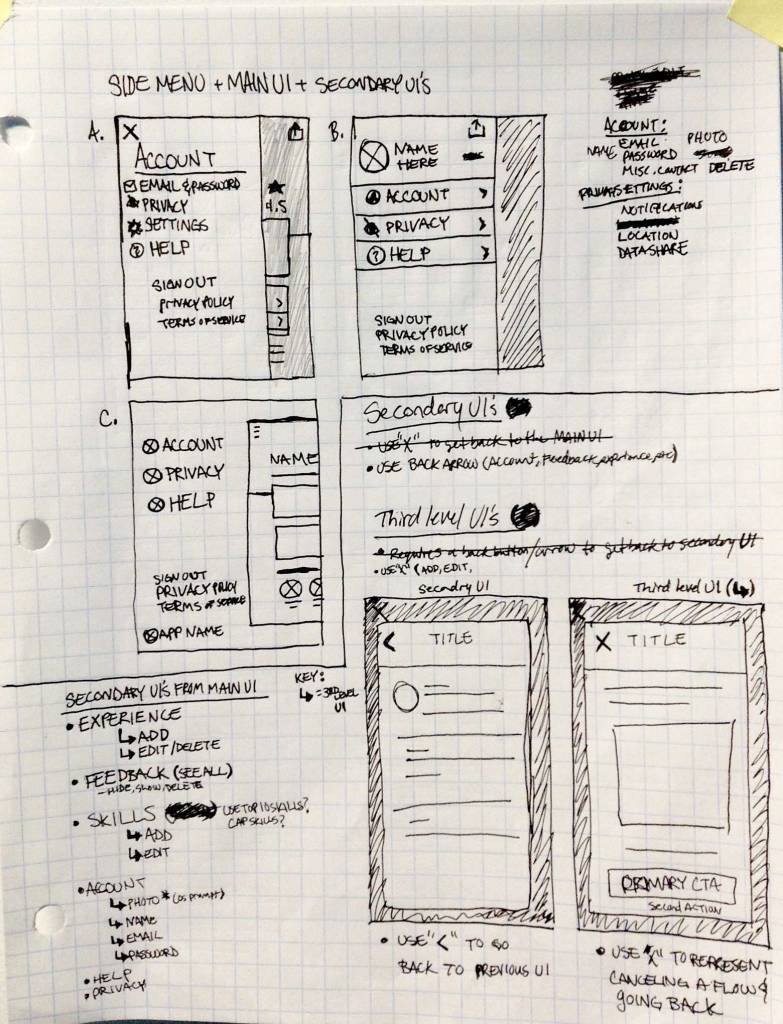 SIDE MENU + MAIN UI + SECONDARY UI'S
A.
X
ACCOUNT
EMAIL & PASSWORD
PRIVACY
SETTINGS
? HELP
SIGN OUT
PRIVACY POLICY
TERMS OF SERVICE
4.5
>
>
B.
NAME
HERE
ACCOUNT >
PRIVACY >
? HELP >
SIGN OUT
PRIVACY POLICY
TERMS OF SERVICE
ACCOUNT:
EMAIL PHOTO
NAME PASSWORD
MISC. CONTACT DELETE
SETTINGS:
NOTIFICATIONS
LOCATION
DATA SHARE
C.
ACCOUNT
PRIVACY
HELP
SIGN OUT
PRIVACY POLICY
TERMS OF SERVICE
APP NAME
NAME
Secondary UI's
• USE "X" to get back to the MAIN UI
• USE BACK ARROW (Account, Feedback, experience, etc)
Third level UI's
• Requires a back button/arrow to get back to secondary UI
• USE "X" (ADD, EDIT,
secondry UI
< TITLE
• USE "<" TO GO
BACK TO PREVIOUS UI
Third level UI (↳)
X TITLE
PRIMARY CTA
Second ACTION
• USE "X" TO REPRESENT
CANCELING A FLOW &
GOING BACK
SECONDARY UI'S FROM MAIN UI
KEY:
↳ = 3RD LEVEL
UI
• EXPERIENCE
↳ ADD
↳ EDIT/DELETE
• FEEDBACK (SEE ALL)
- HIDE, SHOW, DELETE
• SKILLS USE TOP 10 SKILLS?
CAP SKILLS?
↳ ADD
↳ EDIT
• ACCOUNT
↳ PHOTO * (OS PROMPT)
↳ NAME
↳ EMAIL
↳ PASSWORD
• HELP
• PRIVACY